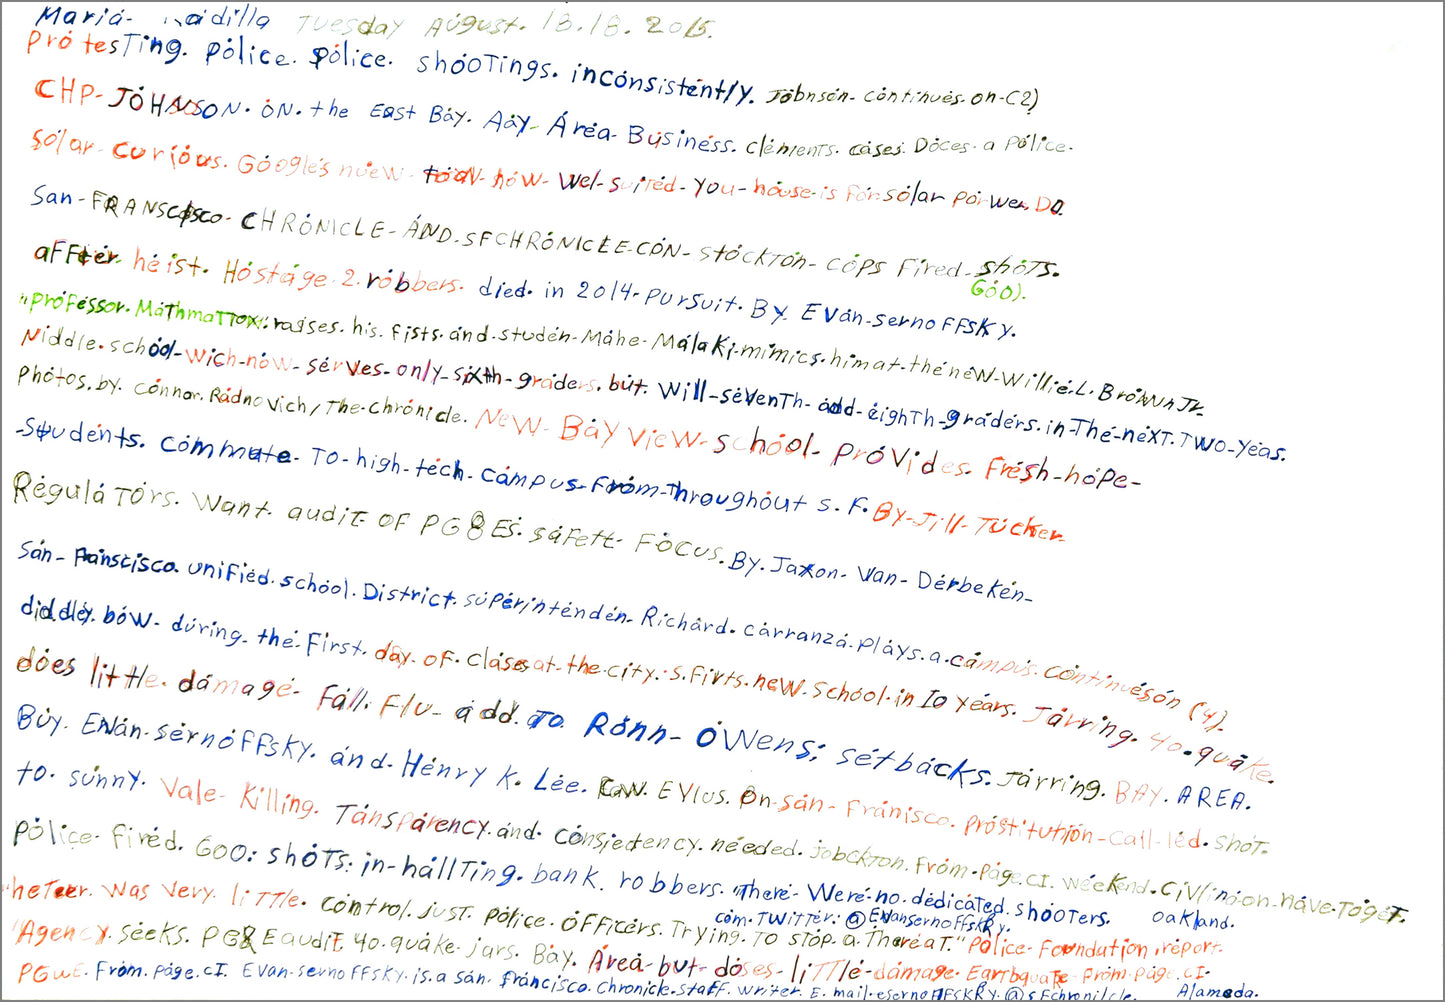 Mariá- adilla Tuesday August. 18.18. 2015.
pro tesTing. police. police. shooTings. inconsistently. Jobnson- continues. on-C2)
CHP- JOHNSON. ON. the East Bay. Aay- Área- Business. clements. cases. Doces- a police.
Solar- curious. Google's nuew- tool- how- wel-suited- you- house-is for solar power. DO.
San-FRANSCisco- CHRÓNICLE- ÁND. SFCHRÓNICEE-CON- STOCKTON- COPS Fired- shoTs.
600).
aFFter. heist. Hostage. 2. robbers. died. in 2014. pursuit. By. Evan-sernoFFsky.
"professor. MathmatTox". raises. his. Fists. and. studen- Mahe- Malaki-mimics. him at- the new- Willie. L. Brown Jr.
Niddle. school- wich- now- serves- only- sixth- graders. but. will- sevenTh- add- eighTh- graders. in- The- nexT. TWO- yeas.
photos. by. connor. Radnovich / The- chronicle. New- Bay View- school- proVides. Fresh- hope-
-students. commute- TO- high- tech. campus- From- throughout S. F. By- Jill- Tucker-
RegulaTors. Want. audit. OF PG8Es. safett- Focus. By. Jaxon- Van- Derbeken-
San- Franscisco. uniFied. school. District. superintenden- Richard. carranza. plays. a. campus. continues on (4).
diddley. bow- during. the. First. day. oF. clases at- the. city.s. Firts. new. school. in 10 years. Jarring. 40. quake.
does little. damage. Fall. Flu- add. To. Ronn- Owens; setbacks. Jarring. BAY. AREA.
Buy. Evan-sernoFFsky. and. Henry K. Lee. Evlus. on- san- Franisco. prostitution- call- led. shot-
to. sunny. Vale- Killing. Tansparency. and. consietency. needed. jobckton. From- page. C1. weekend. civlino- on. nave- Toget.
police- Fired. 600: shots: in- hallTing. bank. robbers. "There- Were. no. dedicated. shooters. oakland.
com. TWiTTer: @EvansernoFFskRy.
"heTeer. Was very. liTTle. control. just. police- oFFicers. Trying. To stop. a. ThereaT." police- Foundation. report.
"Agency. seeks. PG&E audiT. 40. quake- jars. Bay. Area- but- doses- liTTle- damage. Eartbquate- From- page. C1-
PGuE. From. page. C1. Evan- sernoFFsky. is. a san. Francisco. chronicle. staFF. writer. E. mail. esernoFFskRy. @sFchronilcle. Alameda.